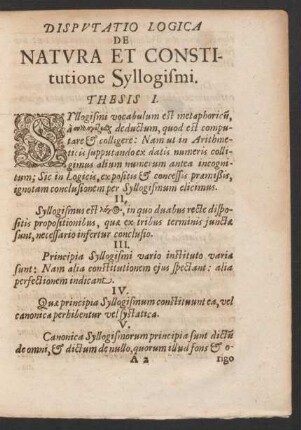 DISPVTATIO LOGICA
DE
NATVRA ET CONSTI-
tutione Syllogiſmi.
THESIS I.
SYllogiſmi vocabulum eſt metaphoricũ,
deductum, quod eſt compu-
tare & colligere: Nam ut in Arithme-
ticis ſupputando ex datis numeris colli-
gimus alium numerum antea incogni-
tum; Sic in Logicis, ex poſitis & conceſſis præmiſſis,
ignotam concluſionem per Syllogiſmum elicimus.
II,
Syllogiſmus eſt λόγ<sup>ος</sup>, in quo duabus recte diſpo-
ſitis propoſitionibus, quæ ex tribus terminis junctæ
ſunt, neceſſario infertur concluſio.
III.
Principia Syllogiſmi vario inſtituto varia
ſunt: Nam alia conſtitutionem ejus ſpectant: alia
perfectionem indicant.
IV.
Quæ principia Syllogiſmum conſtituunt ea, vel
canonica perhibentur vel ſyſtatica.
V.
Canonica Syllogiſmorum principia ſunt dictũ
de omni, & dictum de nullo, quorum illud fons & o-
A 2 rigo